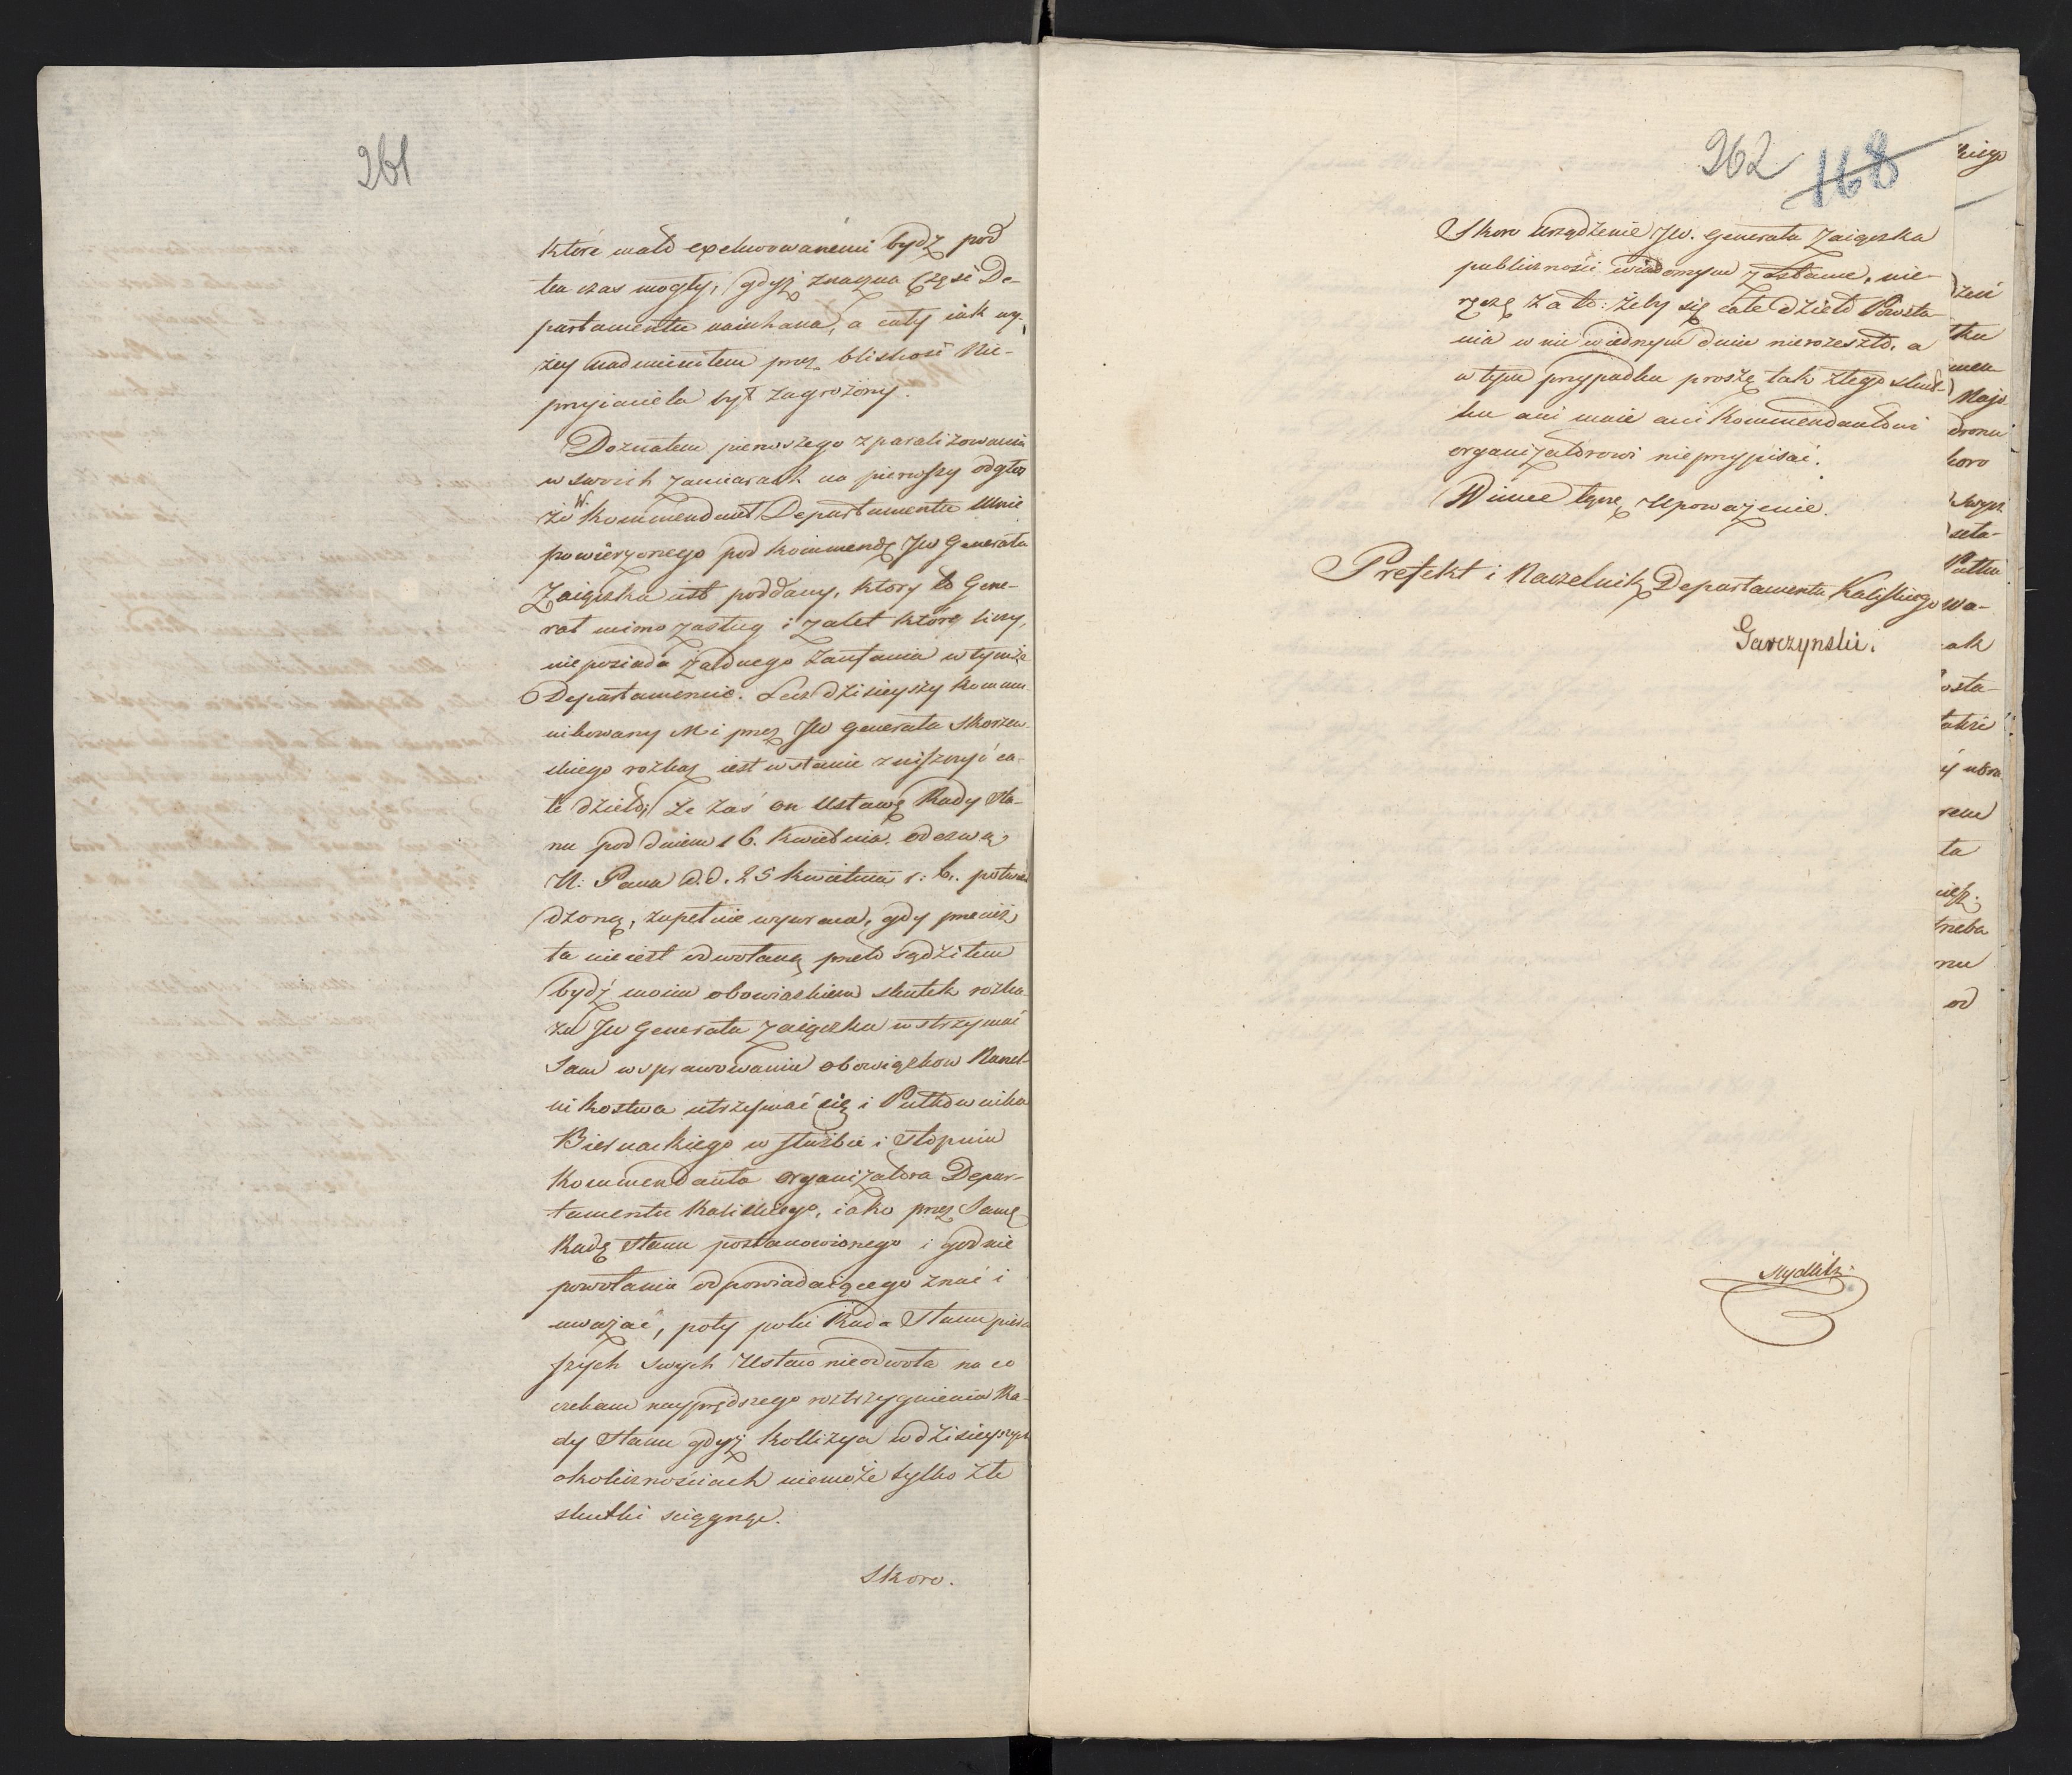 261
które mało exekwowanemi bydź pod
ten czas mogły, gdyż znaczna Część De-
partamentu naiechana, a cały iak wy-
żey nadmieniłem przez bliskość Nie-
przyiaciela był zagrożony.
Doznałem pierwszego zparaliżowania
w swoich zamiarach na pierwszy odgłos
że W. Kommendant Departamentu Mnie
powierzonego pod kommendę JW Generała
Zaiączka iest poddany, który to Gene-
rał mimo zasług i zalet które liczy,
nieposiada żadnego Zaufania w tymże
Departamencie. Lecz dzisieyszy kommu-
nikowany Mi przez JW Generała Skorzew-
skiego rozkaz iest wstanie zniszczyć ca-
łe dzieło, Że zaś on Ustawę Rady Sta-
nu pod dniem 16. Kwietnia. odezwą
M: Pana d.d. 25 kwietnia r: b. potwier
dzoną, zupełnie wywraca, gdy przecież
ta nieiest odwołaną przeto sądziłem
bydź moim obowiaskiem skutek rozka-
zu JW Generała Zaiączka wstrzymać
Sam w sprawowaniu obowiązkow Naczel-
nikostwa utrzymać się i Pułkownika
Biernackiego w służbie i stopniu
Kommendanta organizatora Depar-
tamentu Kaliskiego, iako przez Samę
Radę Stanu postanowionego i godnie
powołania odpowiadaiącego znać i
uważać, poty poki Rada Stanu pierw
szych swych Ustaw nieodwoła na co
czekam nayprędszego roztrzygnienia Ra-
dy Stanu gdyż kollizya w dzisieyszych
okolicznościach niemoże tylko złe
skutki sciągnąć.
Skoro.
262 168
Skoro urządzenie JW. Generała Zaiączka
publiczności wiadomym zostanie, nie-
ręczę za to: żeby się całe dzieło Powsta
nia w nie w iednym dniu nierozeszło, a
w tym przypadku proszę tak złego skut-
ku ani mnie ani Kommendantowi
organizatorowi nieprzypisać.
Winne łączę Upoważenie.
Prefekt i Naczelnik Departamentu Kaliskiego
Garczynski.
kiego
żeń
tku
men-
Majo-
dronu
koro
Swych
seta-
Pułku
wa-
ak
osta-
takri
ta
trzeba
nu
od